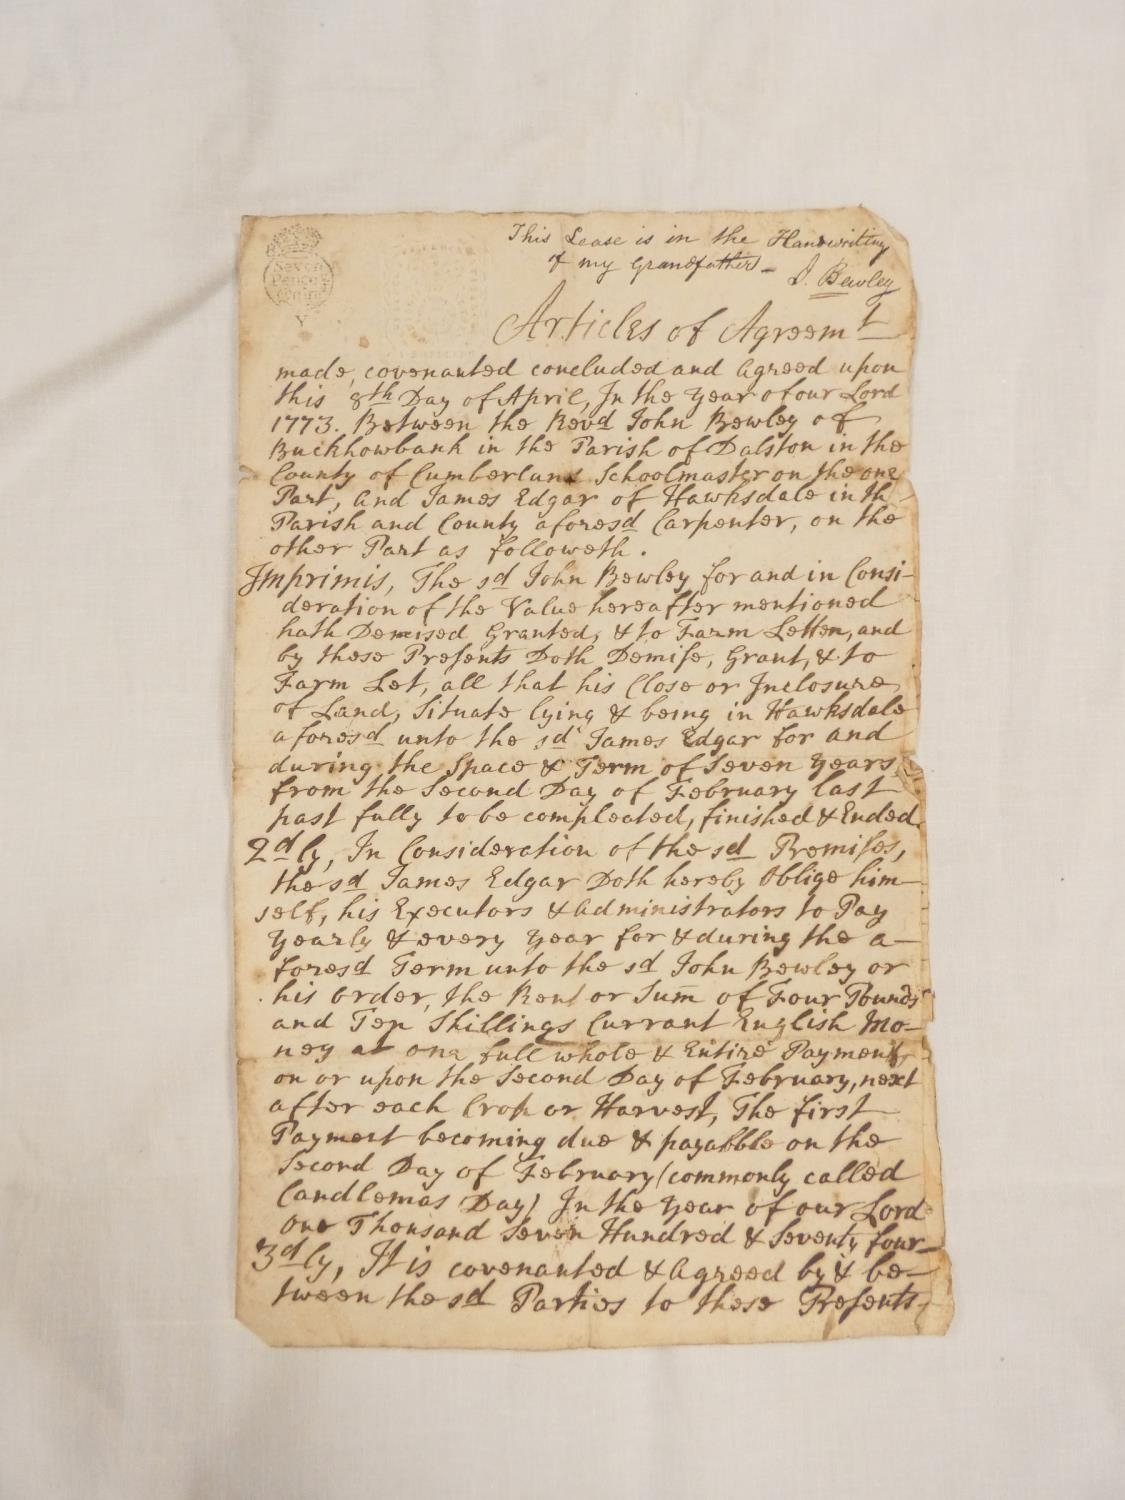 Seven
Pence
Quire
V
This Lease is in the Handwriting
of my Grandfather –
J. Bewley
Articles of Agreemt
made, covenanted concluded and agreed upon
this 8th Day of April, In the Year of our Lord
1773. Between the Revd John Bewley of
Buckhowbank in the Parish of Dalston in the
County of Cumberland Schoolmaster on the one
Part, and James Edgar of Hawksdale in th
Parish and County aforesd Carpenter, on the
other Part as followeth.
Imprimis, The sd John Bewley for and in Consi–
deration of the Value hereafter mentioned
hath Demised Granted, & to Farm Letten, and
by these Presents Doth Demise, Grant, & to
Farm Let, all that his Close or Inclosure
of Land, Situate lying & being in Hawksdale
aforesd unto the sd James Edgar for and
during the Space & Term of Seven Years
from the Second Day of February last
past fully to be compleated, finished & Ended.
2dly, In Consideration of the sd Premises,
the sd James Edgar Doth hereby Oblige him–
self, his Executors & Administrators to Pay
Yearly & every Year for & during the a–
foresd Term unto the sd John Bewley or
his order, the Rent or Sum of Four Pounds
and Ten Shillings Currant English Mo–
ney at one full whole & Entire Payment,
on or upon the Second Day of February, next
after each Crop or Harvest, The first
Payment becoming due & payabble on the
Second Day of February (commonly called
Candlemas Day) In the Year of our Lord
One Thousand Seven Hundred & Seventy four–
3dly, It is covenanted & Agreed by & be–
tween the sd Parties to these Presents–